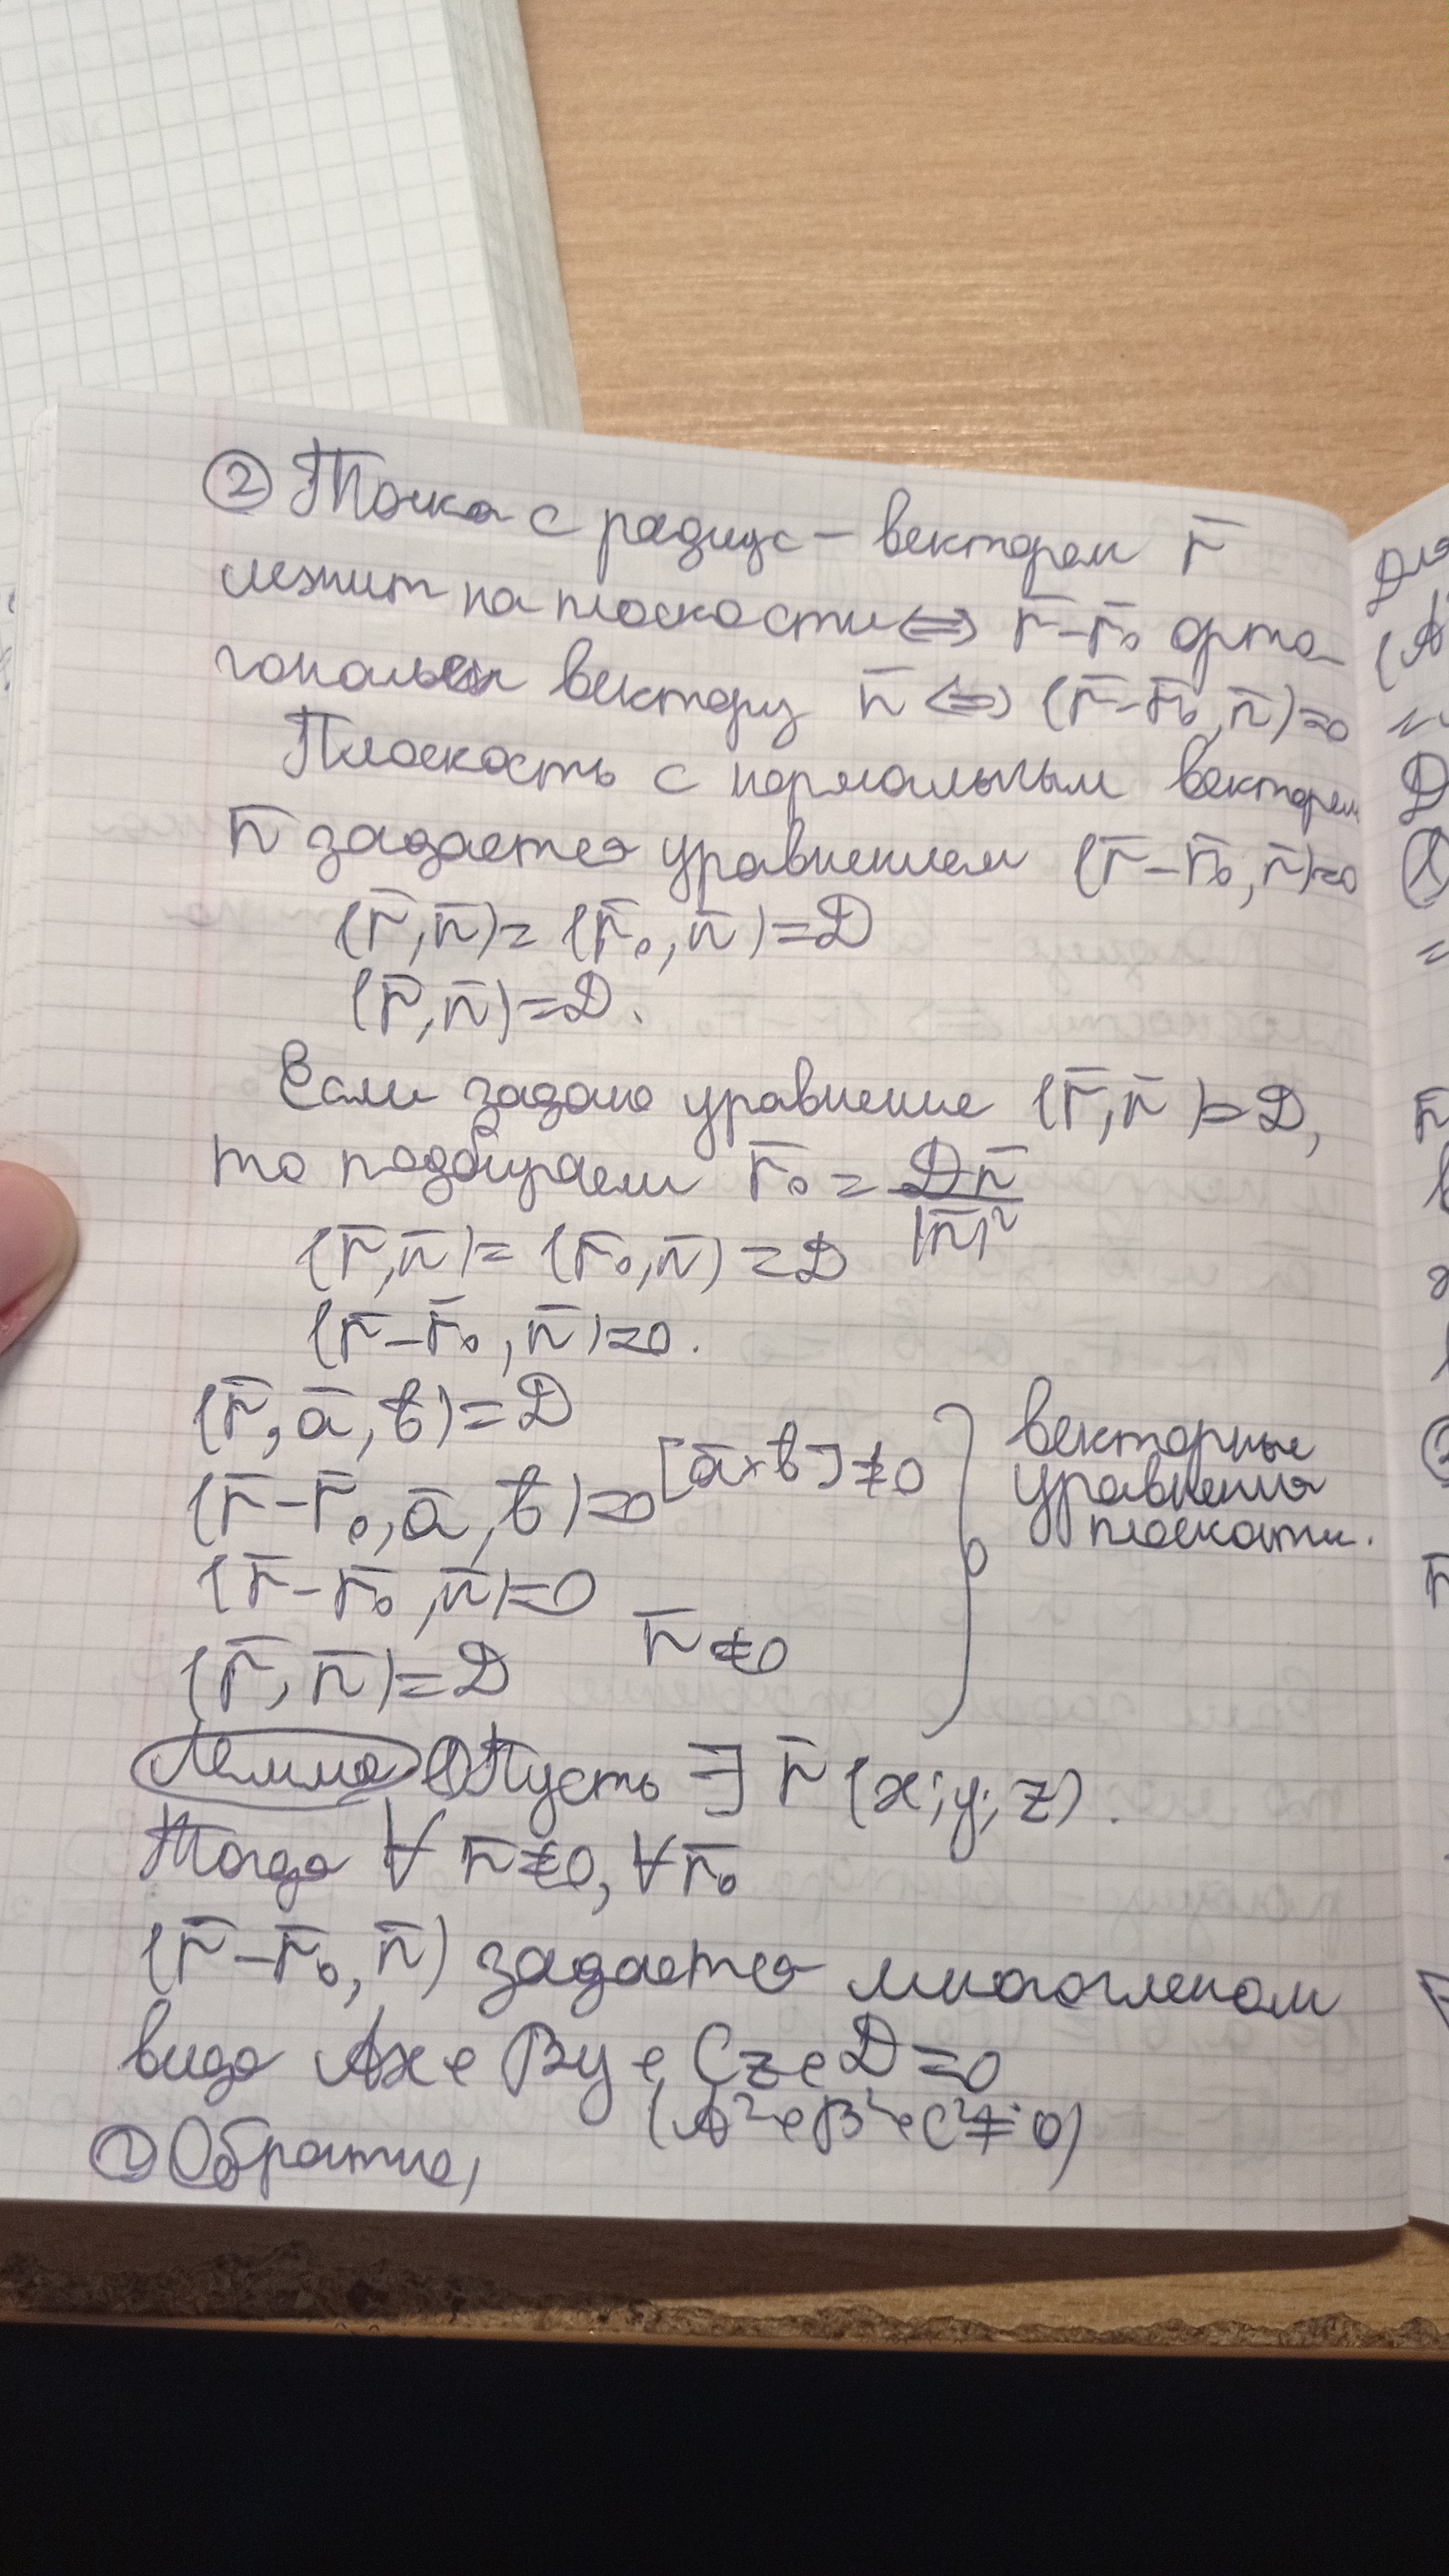 ② Точка с радиус-вектором r̅
лежит на плоскости ⇔ r̅-r̅₀ орто-
гонален вектору n̅ ⇔ (r̅-r̅₀, n̅)=0
Плоскость с нормальным вектором
n̅ задается уравнением (r̅-r̅₀, n̅)=0
(r̅, n̅) = (r̅₀, n̅) = D
(r̅, n̅) = D.
Если задано уравнение (r̅, n̅) = D,
то подбираем r̅₀ = Dn̅/|n̅|²
(r̅, n̅) = (r̅₀, n̅) = D
(r̅-r̅₀, n̅)=0.
(r̅, a̅, b̅) = D
(r̅-r̅₀, a̅, b̅)=0 [a̅×b̅]≠0
(r̅-r̅₀, n̅)=0
(r̅, n̅) = D n̅≠0
векторные
уравнения
плоскости.
Лемма ① Пусть ∃ r̅ (x; y; z).
Тогда ∀ n̅≠0, ∀ r̅₀
(r̅-r̅₀, n̅) задается многочленом
вида Ax+By+Cz+D=0
(A²+B²+C²≠0)
② Обратно,
Для